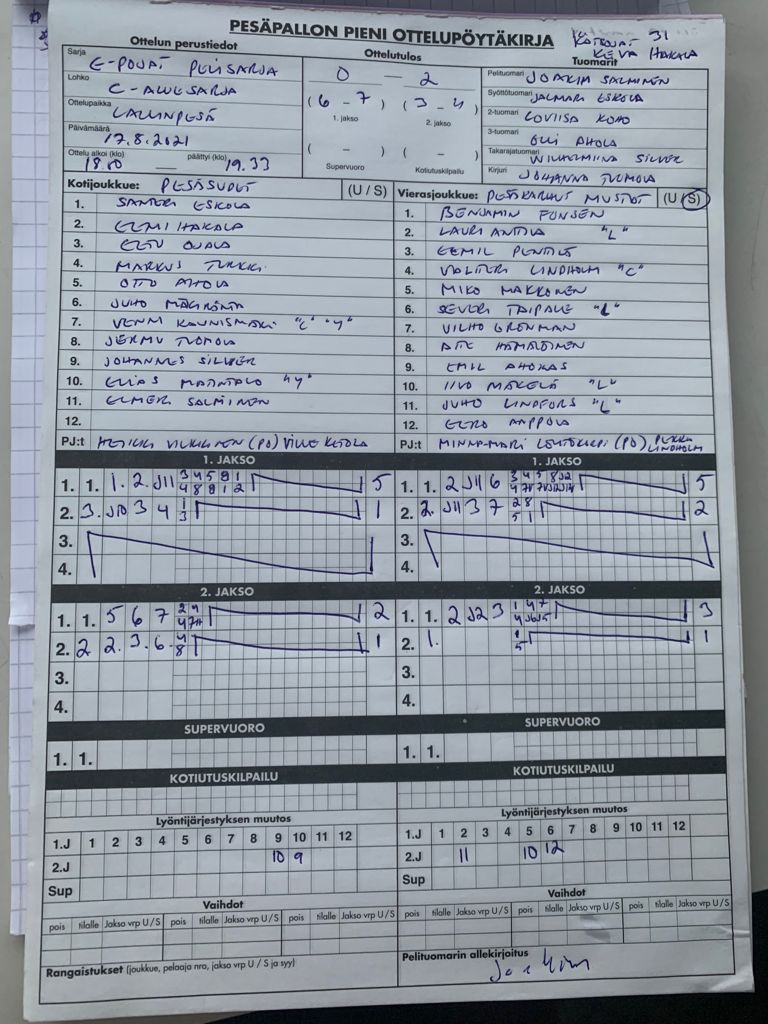 PESÄPALLON PIENI OTTELUPÖYTÄKIRJA
KOTKOJAT 31
KEVA HAKALA
Ottelun perustiedot
Sarja E-POJAT PELISARJA
Lohko C-ALUESARJA
Ottelupaikka LALLINPESÄ
Päivämäärä 17.8.2021
Ottelu alkoi (klo) 18.00 päättyi (klo) 19.33
Ottelutulos
0 — 2
(6 - 7) (3 - 4)
1. jakso 2. jakso
( - ) ( - )
Supervuoro Kotiutuskilpailu
Tuomarit
Pelituomari JOAKIM SALMINEN
Syöttötuomari JALMARI ESKOLA
2-tuomari LOVIISA KOHO
3-tuomari OLLI AHOLA
Takarajatuomari WILHELMIINA SILVER
Kirjuri JOHANNA TUOMOLA
Kotijoukkue: PESÄSUDET (U / S)
1. SANTERI ESKOLA
2. EEMI HAKALA
3. EETU OJALA
4. MARKUS TURKKI
5. OTTO AHOLA
6. JUHO MÄKIRINTA
7. VENNI KAUNISMÄKI "C" "Y"
8. JERMU TUOMOLA
9. JOHANNES SILVER
10. ELIAS MATINTALO "Y"
11. ELMERI SALMINEN
12.
PJ:t HEIKKI VILKKINEN (PO) VILLE KETOLA
Vierasjoukkue: PESÄKARHUT MUSTAT (U / S)
1. BENJAMIN FONSEN
2. LAURI ANTTILA "L"
3. EEMIL PENTTILÄ
4. VALTTERI LINDHOLM "C"
5. MIKO MAKKONEN
6. SEVERI TAIPALE "L"
7. VILHO GRÖNMAN
8. HÄMÄLÄINEN
9. EMIL AHOKAS
10. IIVO MÄKELÄ "L"
11. JUHO LINDFORS "L"
12. EERO
PJ:t MINNA-MARI (PO) PEKKA LINDHOLM
1. JAKSO
1. 1. 1. 2. J11 3 4 5 8 1 5
4 8 9 1 2
2. 3. J10 3 4 1 1
3
3.
4.
1. JAKSO
1. 1. 2 J11 6 3 4 5 8 J2 5
2. 2. J11 3 7 2 8 2
5 1
3.
4.
2. JAKSO
1. 1. 5 6 7 2 4 2
2. 2 2. 3. 6. 4 1
8
3.
4.
2. JAKSO
1. 1. 2 J23 1 4 7 3
2. 1. 1 1
5
3.
4.
SUPERVUORO
1. 1.
SUPERVUORO
1. 1.
KOTIUTUSKILPAILU
KOTIUTUSKILPAILU
Lyöntijärjestyksen muutos
1.J 1 2 3 4 5 6 7 8 9 10 11 12
2.J 10 9
Sup
Lyöntijärjestyksen muutos
1.J 1 2 3 4 5 6 7 8 9 10 11 12
2.J 11 10 12
Sup
Vaihdot
pois tilalle Jakso vrp U / S pois tilalle Jakso vrp U / S pois tilalle Jakso vrp U / S
Vaihdot
pois tilalle Jakso vrp U / S pois tilalle Jakso vrp U / S pois tilalle Jakso vrp U / S
Rangaistukset (joukkue, pelaaja nro, jakso vrp U / S ja syy)
Pelituomarin allekirjoitus